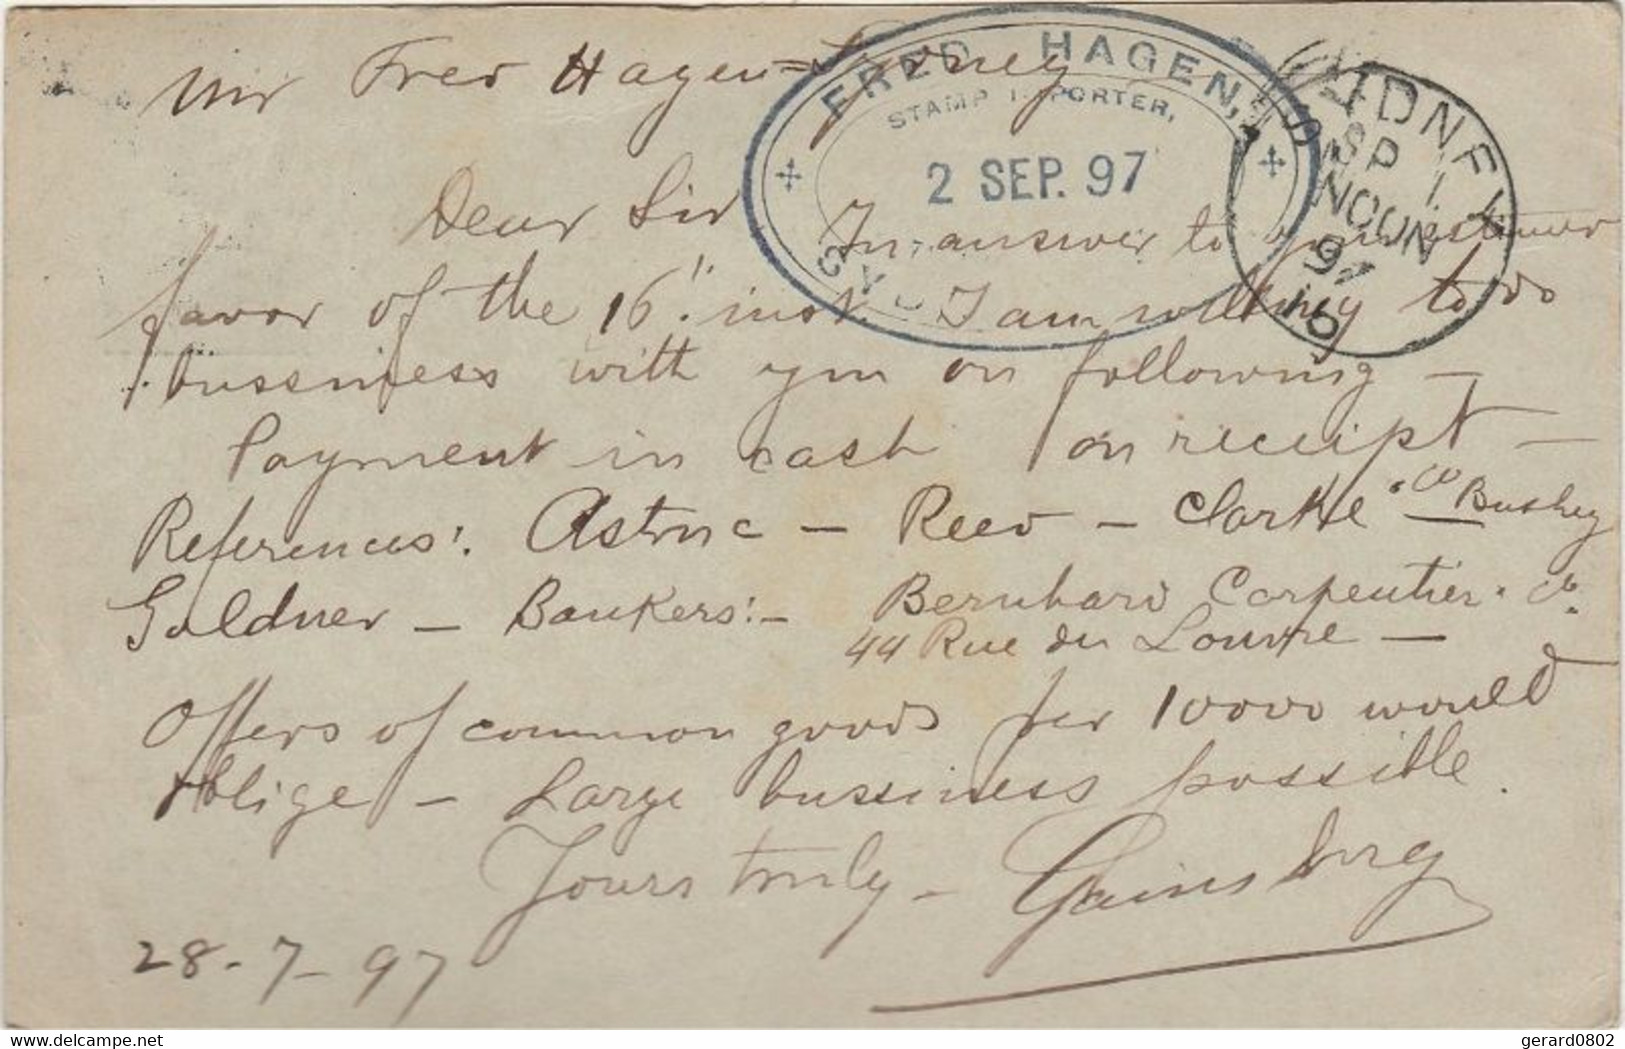 Mr Fred Hagen = Sydney
FRED HAGEN,
STAMP IMPORTER,
2 SEP. 97
SYDNEY
SYDNEY
SP 1
NOON
97
Dear Sir In answer to your
favor of the 16" inst. I am willing to do
bussiness with you on following -
Payment in cash on receipt -
References: Astruc - Reed - Clarke Co Bushey
Goldner - Bankers:- Bernhard Carpentier. Co.
44 Rue du Louvre -
Offers of common goods per 10000 would
oblige - Large bussiness possible.
Yours truly - Gainsburg
28-7-97
delcampe.net
gerard0802